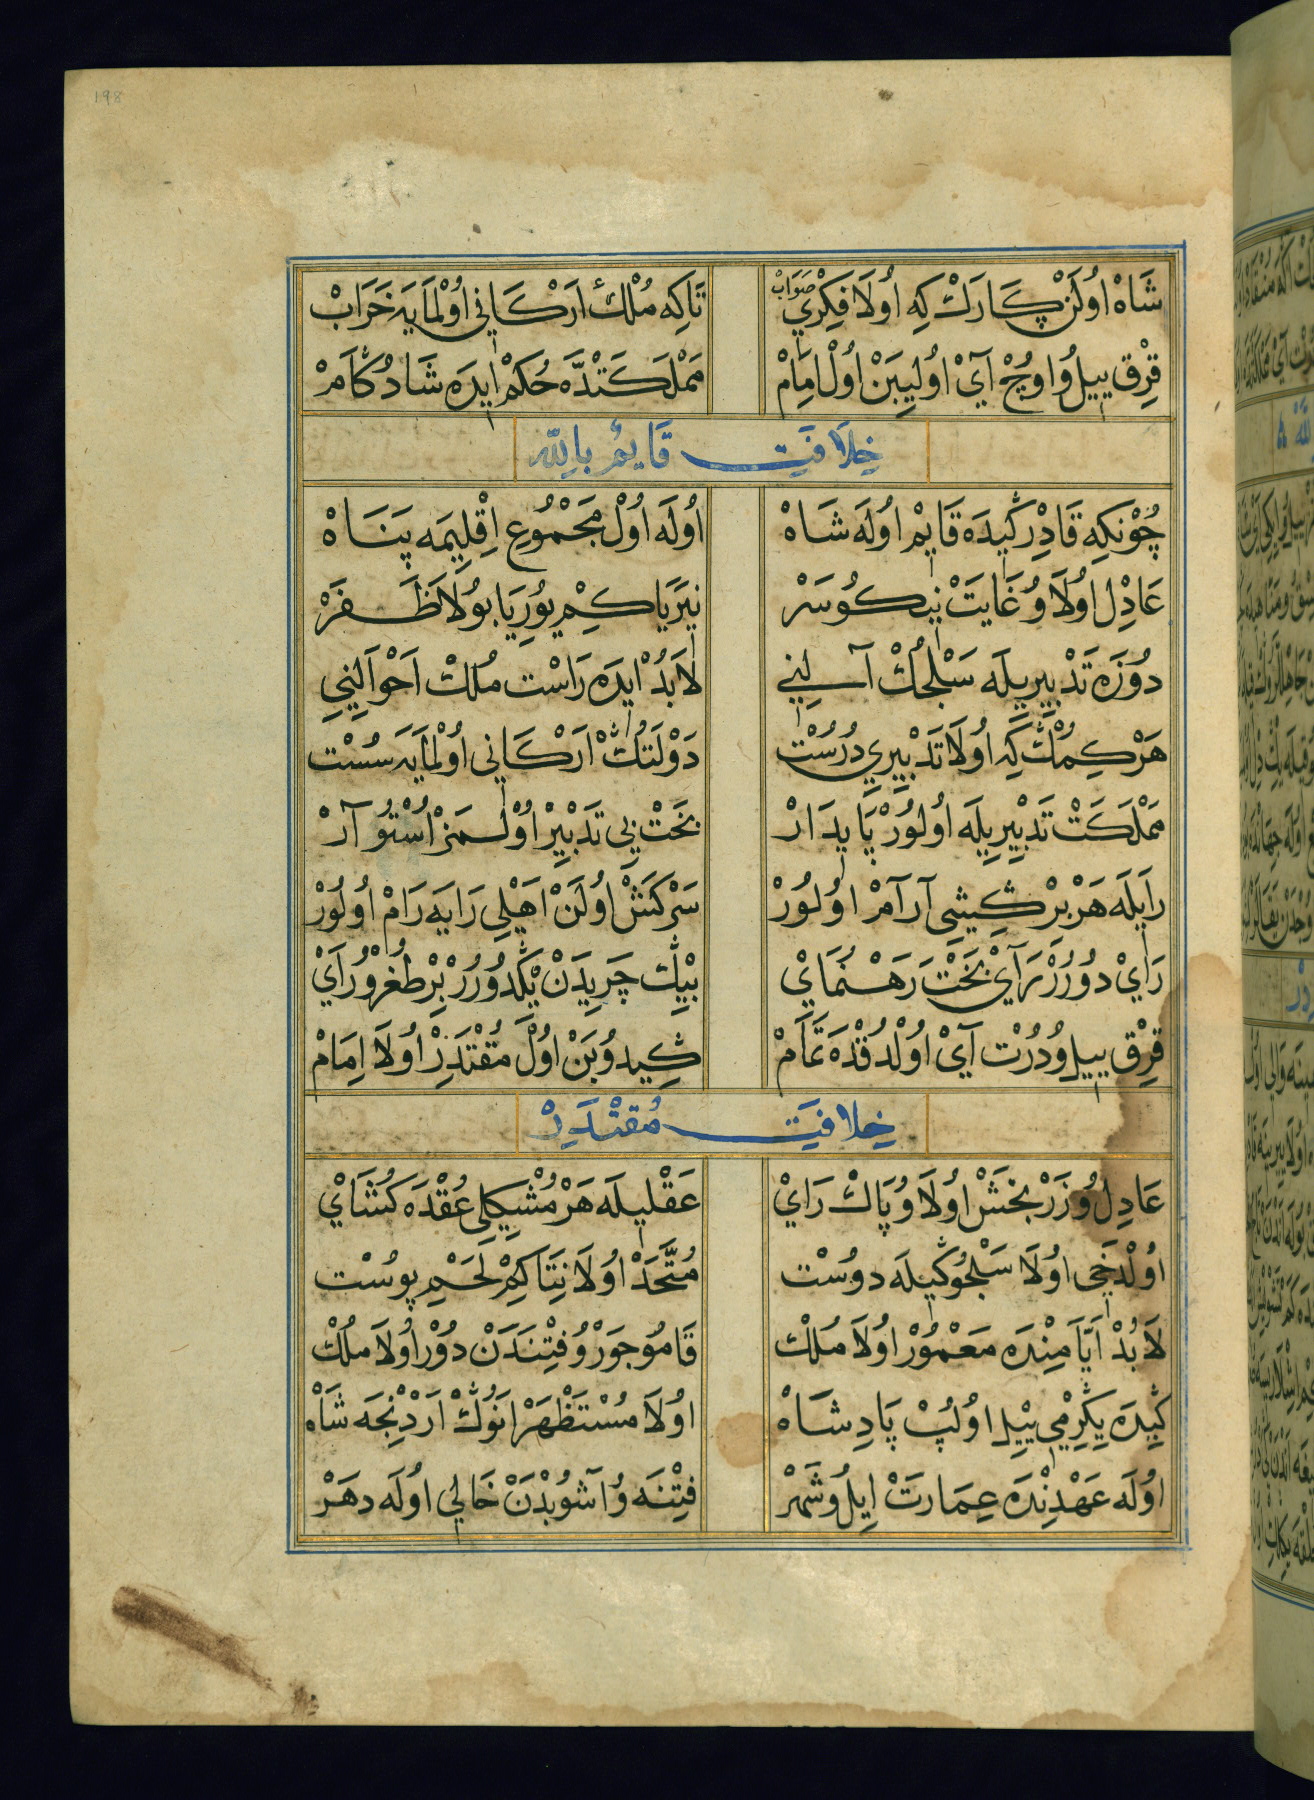 شَاهْ اُولَنْ كَارَكْ كِه اُولَا فِكْرِي صَوَابْ تَاكِه مُلْكْ اَرْكَانِي اُوْلْمَايَه خَرَابْ
قِرْق ييِلُ واُوجْ آيْ اُوليِبَنْ اُولْ اِمَامْ مَمْلَكَتْدَه حُكْمْ اِيدَه شَادُكَامْ
خِلَافَتِ قَايِمْ بِاللّه
چُوْنكِه قَادِرْ كيدَه قَايِمْ اُولَه شَاهْ اُولَه اُولْ مَجْمُوعِ اِقْلِيمَه پَنَاهْ
عَادِلْ اُولَا وُ غَايَتْ نيكُوسَرْ نيَرَيَا كِمْ يُورِيَا بُولَا ظَفَرْ
دُوزَه تَدْبيرِيلَه سَلْجُكْ آلِنِي لَابُدْ ايدَه رَاسْت مُلْكْ اَحْوَالِنِي
هَرْ كِمُكْ كِه اُولَا تَدْبيرِي دُرُسْت دَوْلَتُكْ اَرْكَانِي اُوْلْمَايَه سُسْت
مَمْلَكَتْ تَدْبيرِيلَه اُولُورْ پَايِدَارْ بَخْتْ بِي تَدْبيرْ اُوْلْمَزْ اُسْتُوَارْ
رَايلَه هَرْ بِرْ كِيشِي آرَامْ اُولُورْ سَرْكَشْ اُولَنْ اَهْلِ رَايَه رَامْ اُولُورْ
رَايْ دُورُرْ رَايْ بَخْتَه رَهْنُمَايْ بيِكْ چَرِيدَنْ يِكْدُورُرْ بِرْ طُغْرُو رَايْ
قِرْق ييِلُ ودُرْت آيْ اُولْدُقْدَه تَمَامْ كيدُوبَنْ اُولْ مُقْتَدِرْ اُولَا اِمَامْ
خِلَافَتِ مُقْتَدِرْ
عَادِلُ وُ زَرْبَخْشْ اُولَا وُ پَاكْ رَايْ عَقْليلَه هَرْ مُشْكِلِ عُقْدَه كُشَايْ
اُولْدَخِي اُولَا سَلْجُوكيلَه دُوسْت مُتَّحِدْ اُولَا نِتَاكِمْ لَحْمِ پُوسْت
لَابُدْ اَيَّامِنْدَه مَعْمُورْ اُولَا مُلْكْ قَامُو جَوْرُ وُ فِتْنَدَنْ دُورْ اُولَا مُلْكْ
كيدَه يكِرْمِي ييِل اُولُپْ پَادِشَاهْ اُولَا مُسْتَظْهَرْ اَنُوكْ اَرْدِنْجَه شَاهْ
اُولَه عَهْدِنْدَه عِمَارَتْ ايلُ وُ شَهْرْ فِتْنَه وُ آشُوبْدَنْ خَالِي اُولَه دَهْرْ
198